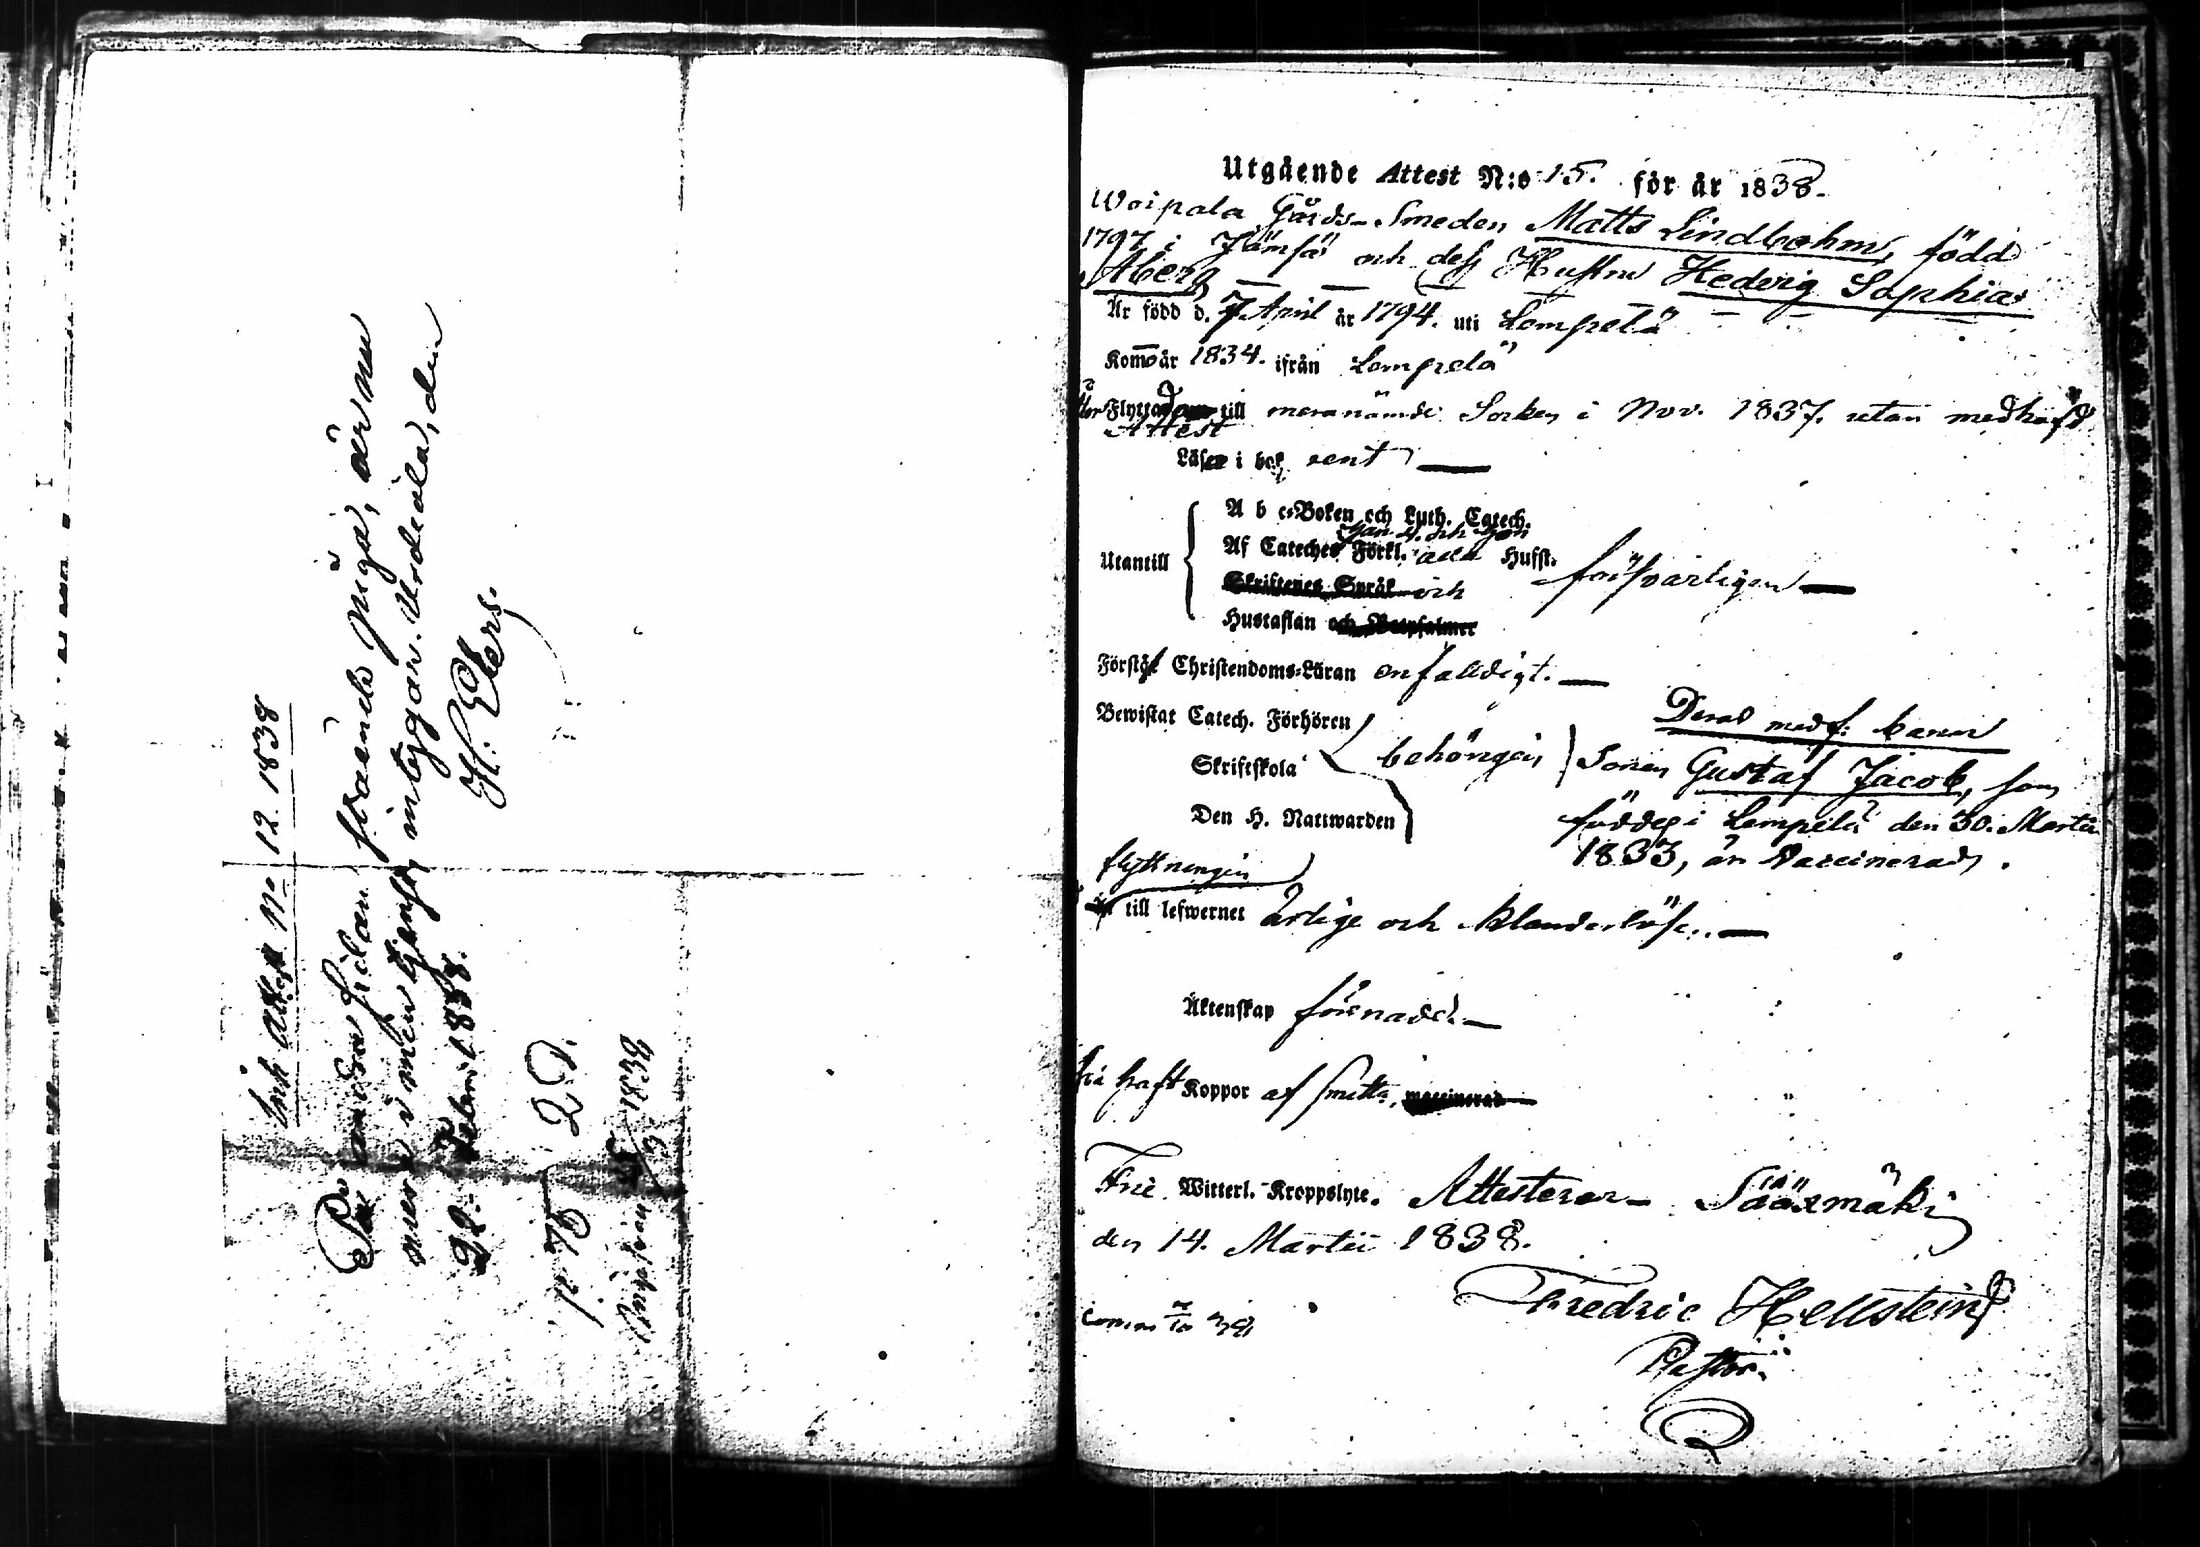 Ink. Attest No 12. 1838
På andra sidan stående piga, är nu
mera i min tjenst, intygar. Urdiala, den
22. Febr. 1838.
H. Elers.
p. 73
Utgående Attest N:o 15. för år 1838.
Woipala Gårds-Smeden Matts Lindbohm, född
1797 i Jämsä och dess Hustru Hedvig Sophia
Åberg
Är född d. 7 April år 1794. uti Lempelä
Kom år 1834. ifrån Lempelä
Flyttade till meranämde Socken i Nov. 1837. utan medhafd
Attest
Läsa i bok rent
Utantill
A b c-Boken och Luth. Catech.
Af Cateches Förkl. alla Husst.
Skriftenes Språk och
Hustaflan och Botpsalmer
försvarligen
Förstå Christendoms-Läran enfalldigt.
Bewistat Catech. Förhören
Skriftskola
Den H. Nattwarden
behörigen
Deras medf. barn
Sonen Gustaf Jacob, som
föddes i Lempelä den 30. Martii
1833, är Vaccinerad.
flyttningen
till lefwernet ärlige och klanderlöse.
Äktenskap förenade.
haft Koppor af smitta, vaccinerad
Frie Witterl. Kroppslyte. Attesterar Sääxmäki
den 14. Martii 1838.
Fredric Hellstein
Pastor